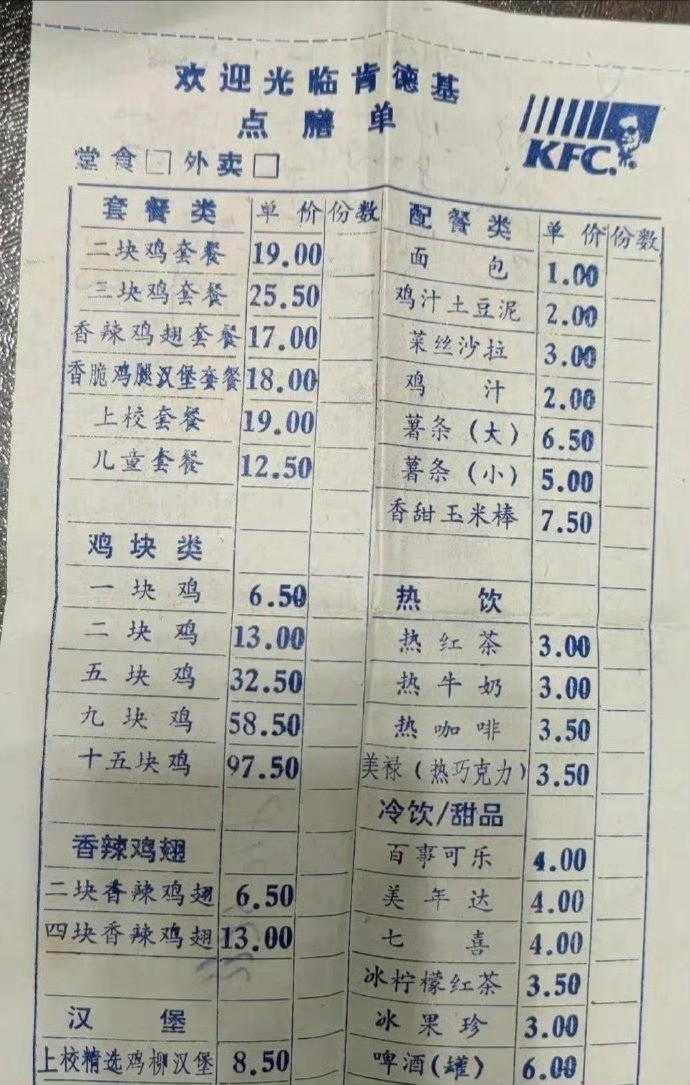 欢迎光临肯德基
点膳单
KFC
堂食□ 外卖□
套餐类 单价 份数
二块鸡套餐 19.00
三块鸡套餐 25.50
香辣鸡翅套餐 17.00
香脆鸡腿汉堡套餐 18.00
上校套餐 19.00
儿童套餐 12.50
鸡块类
一块鸡 6.50
二块鸡 13.00
五块鸡 32.50
九块鸡 58.50
十五块鸡 97.50
香辣鸡翅
二块香辣鸡翅 6.50
四块香辣鸡翅 13.00
汉堡
上校精选鸡柳汉堡 8.50
配餐类 单价 份数
面包 1.00
鸡汁土豆泥 2.00
菜丝沙拉 3.00
鸡汁 2.00
薯条(大) 6.50
薯条(小) 5.00
香甜玉米棒 7.50
热饮
热红茶 3.00
热牛奶 3.00
热咖啡 3.50
美禄(热巧克力) 3.50
冷饮/甜品
百事可乐 4.00
美年达 4.00
七喜 4.00
冰柠檬红茶 3.50
冰果珍 3.00
啤酒(罐) 6.00